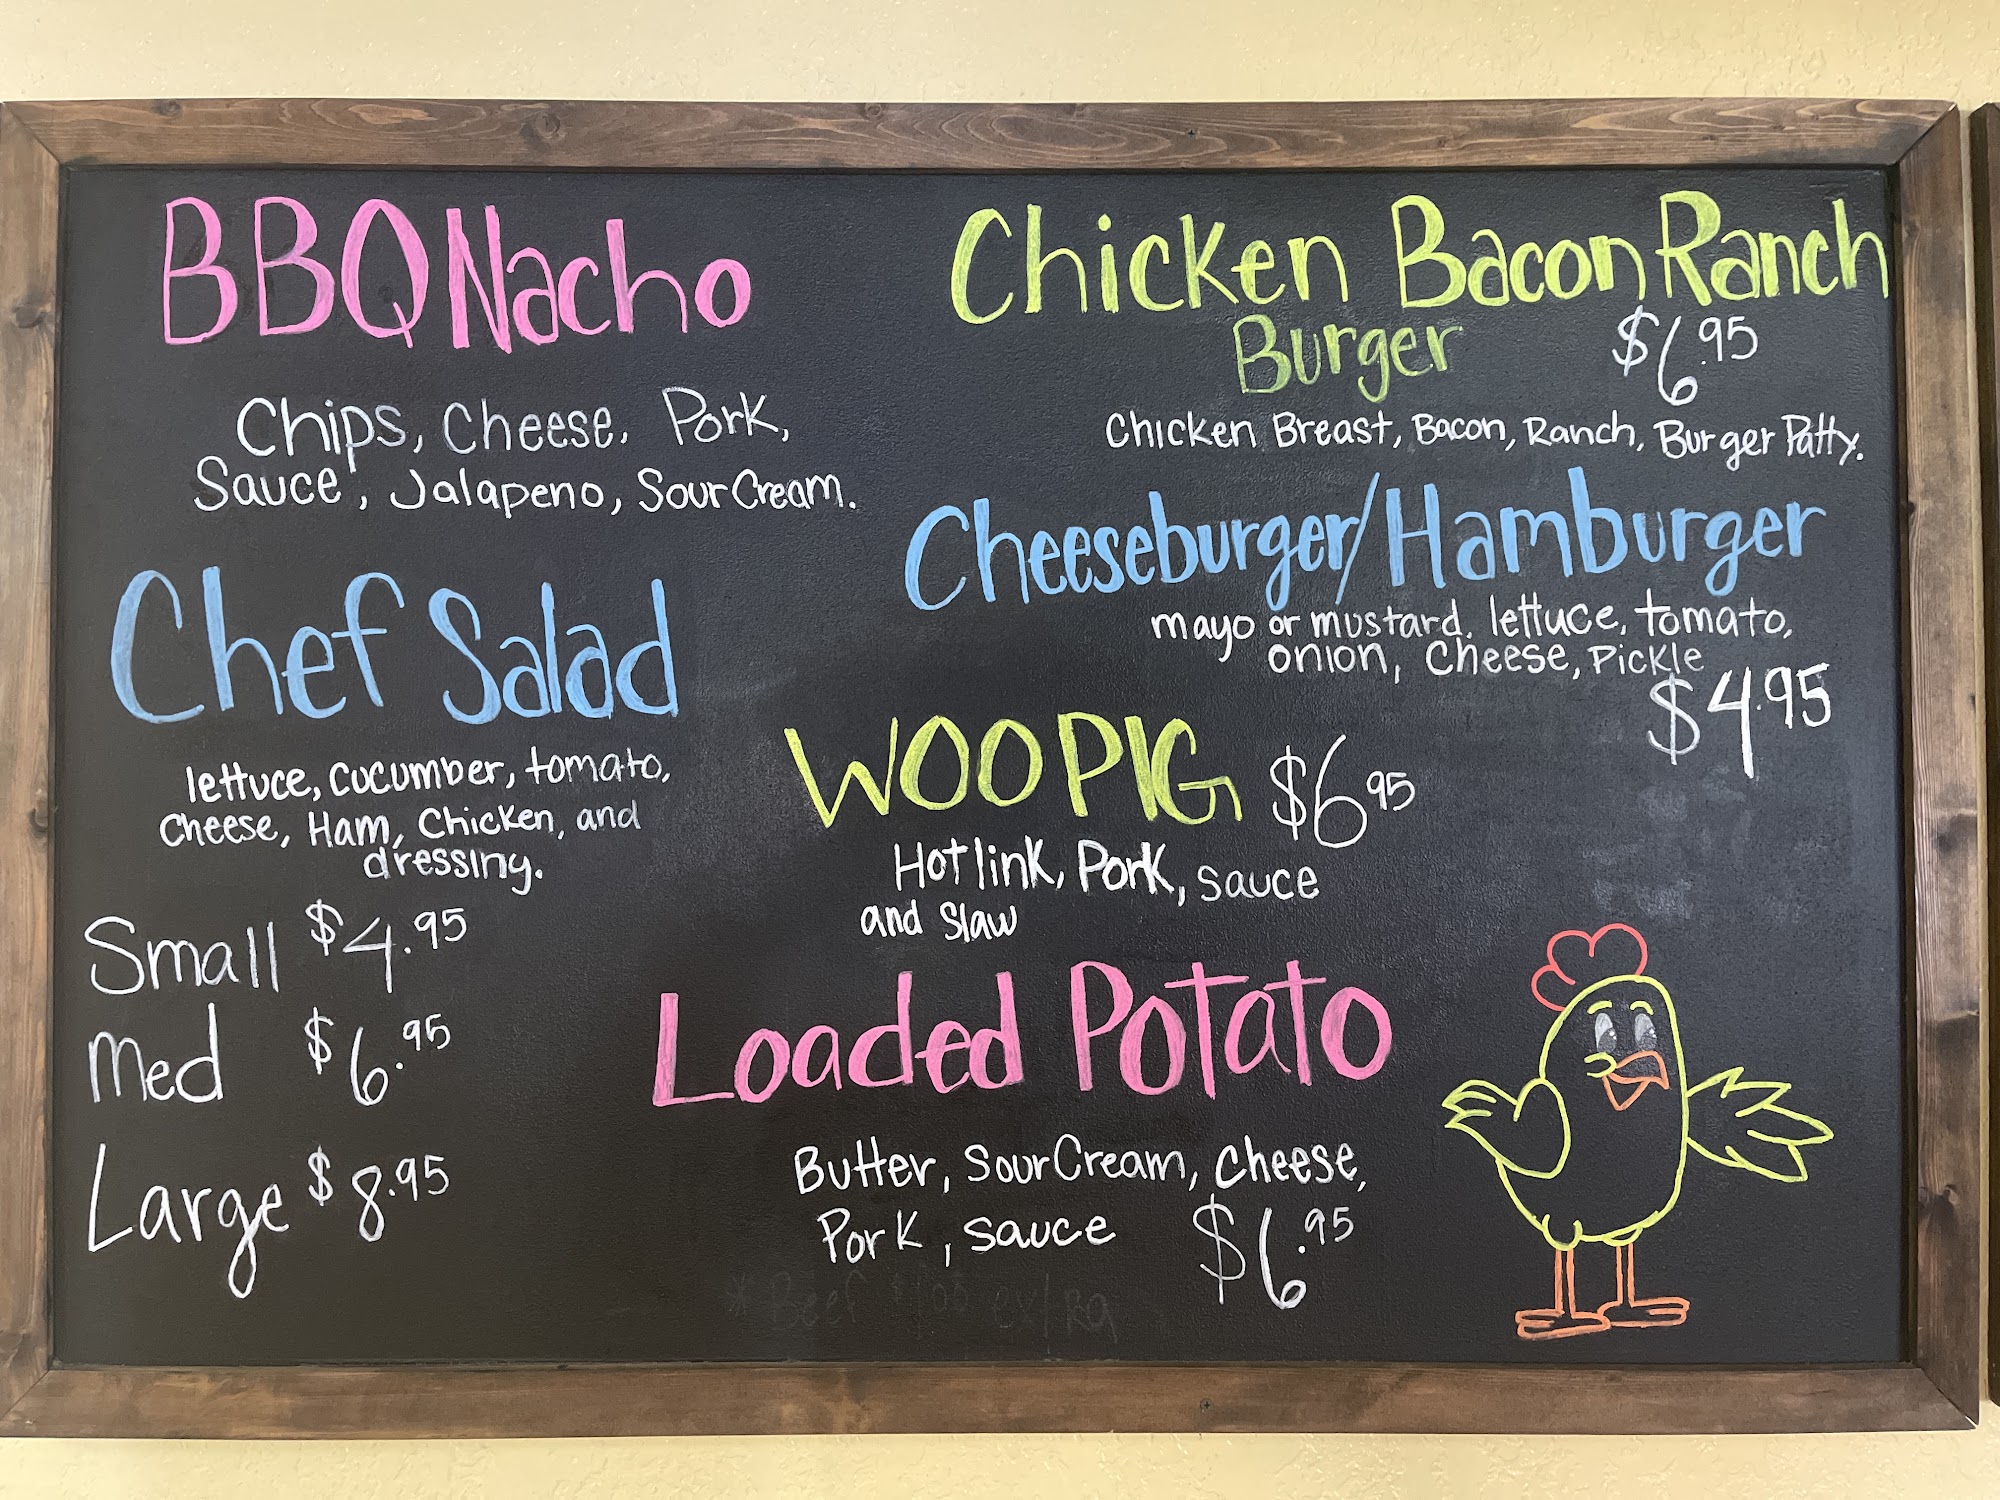 BBQ Nacho
Chips, Cheese, Pork,
Sauce, Jalapeno, Sour Cream.
Chef Salad
lettuce, cucumber, tomato,
Cheese, Ham, Chicken, and
dressing.
Small $4.95
Med $6.95
Large $8.95
Chicken Bacon Ranch
Burger $6.95
Chicken Breast, Bacon, Ranch, Burger Patty.
Cheeseburger/Hamburger
mayo or mustard, lettuce, tomato,
onion, Cheese, Pickle
$4.95
WOO PIG $6.95
Hot link, Pork, sauce
and Slaw
Loaded Potato
Butter, Sour Cream, Cheese,
Pork, sauce $6.95
* Beef $1.00 extra